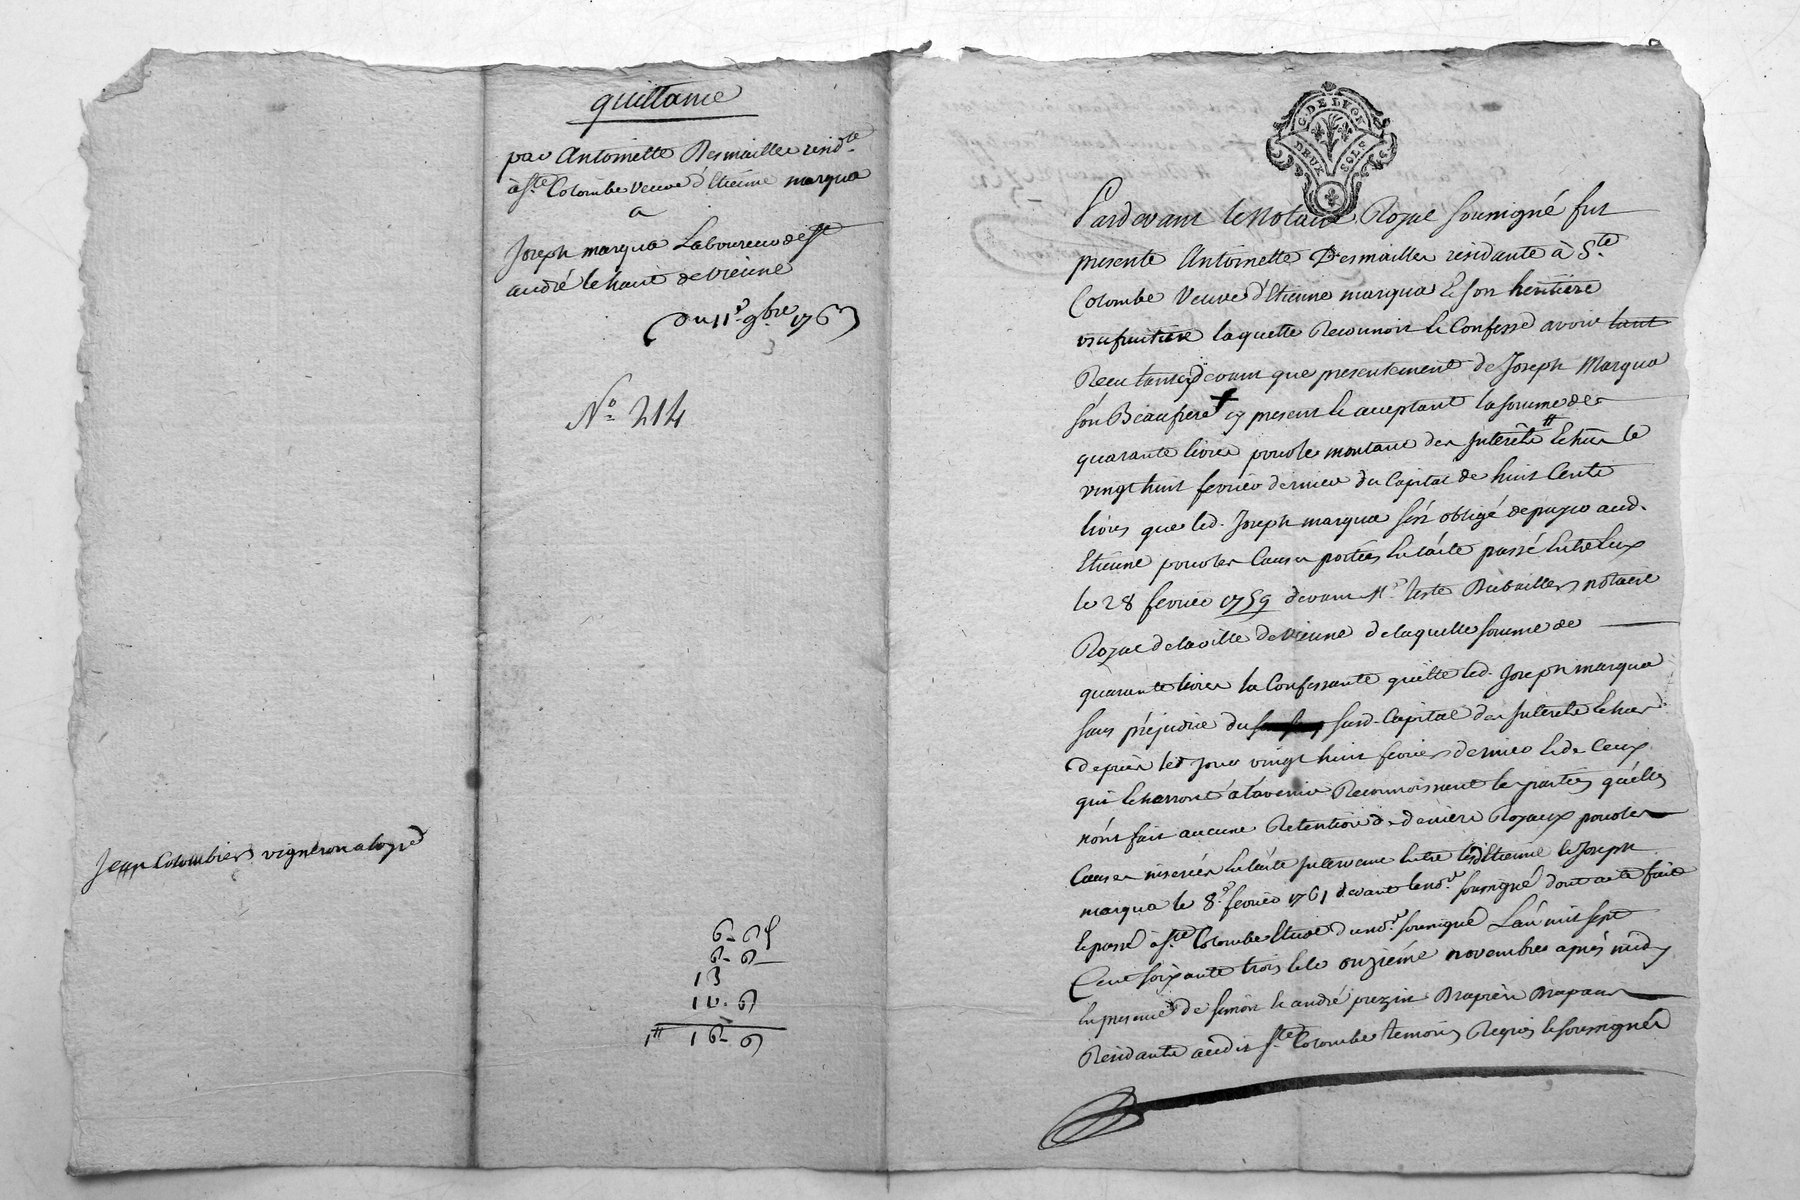 quittance
par Antoinette Desmailles resid.te
à S.te Colombe veuve d'Etienne marqua
a
Joseph marqua Laboureur de S.t
andré le haut de vienne
du 11.e 9.bre 1763
3
N.o 214
Jean Colombier vigneron a
6 - 6
6 - 6
13
10 - 6
1 16 - 6
G. DE LYON
DEUX SOLS
Pardevant le Notaire Royal soussigné fut
presente Antoinette Desmailles residante à S.te
Colombe Veuve d'Etienne marqua & son heritiere
usufruitiere laquelle Reconnoit & Confesse avoir tant
Receu tant cydevant que presentement de Joseph Marqua
son Beaufrere + cy present & acceptant la somme de
quarante livres pour le montant des Interêts Echus le
vingt huit fevrier dernier du Capital de huit Cents
livres que led. Joseph marqua s'est obligé de payer aud.
Etienne pour les Causes portées en l'acte passé entre Eux
le 28 fevrier 1759 devant M.e notaire
Royal de la ville de vienne de laquelle somme de
quarante livres la Confessante quitte led. Joseph marqua
sans préjudice du susd. Capital des Interets Echus
depuis led jour vingt huit fevrier dernier & de Ceux
qui Echerront à l'avenir Reconnoissent les parties qu'elles
n'ont fait aucune Retention de deniers Royaux pour les
Causes inserées en l'acte Intervenu Entre lesd Etienne & Joseph
marqua le 8.e fevrier 1761 devant le no.re soussigné dont acte fait
& passé à S.te Colombe Etude du no.re soussigné L'an mil sept
Cent soixante trois & le onzieme novembre après midy
En presence de simon & andré
Residants audit S.te Colombe temoins Requis & soussignés